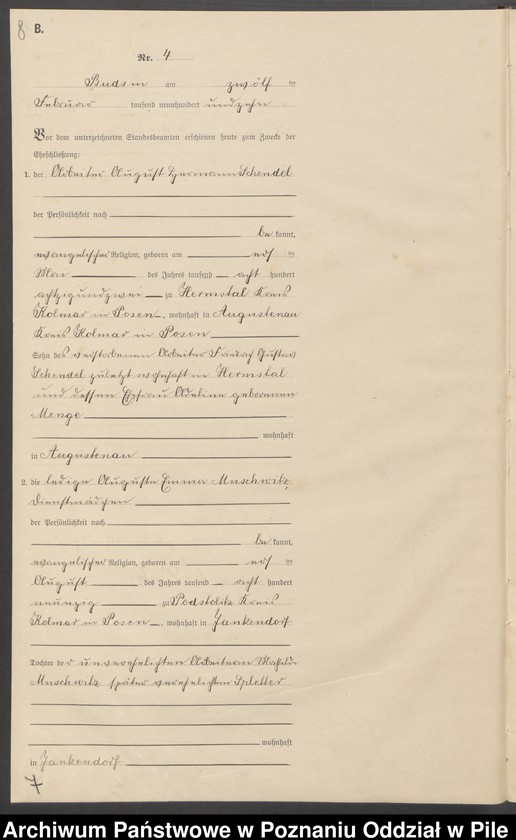 8 B.
Nr. 4
Budsin am zwölf ten
Februar tausend neunhundert undzehn
Vor dem unterzeichneten Standesbeamten erschienen heute zum Zwecke der
Eheschließung:
1. der Arbeiter August Hermann Schendel
der Persönlichkeit nach
be kannt,
evangelischer Religion, geboren am ers ten
Mai des Jahres tausend acht hundert
achtzigundzwei zu Hermstal Kreis
Kolmar in Posen, wohnhaft in Augustenau
Kreis Kolmar in Posen
Sohn des verstorbenen Arbeiter Gustav
Schendel zuletzt wohnhaft in Hermstal
und dessen Ehefrau geborenen
Menge
wohnhaft
in Augustenau
2. die ledige Auguste Emma Muschwitz,
Dienstmädchen
der Persönlichkeit nach
be kannt,
evangelischer Religion, geboren am ers ten
August des Jahres tausend acht hundert
neunzig zu Podstolitz Kreis
Kolmar in Posen, wohnhaft in Jankendorf
Tochter der unverehelichten Arbeiterin Mathilde
Muschwitz später verehelichten Spletter
wohnhaft
in Jankendorf
Archiwum Państwowe w Poznaniu Oddział w Pile